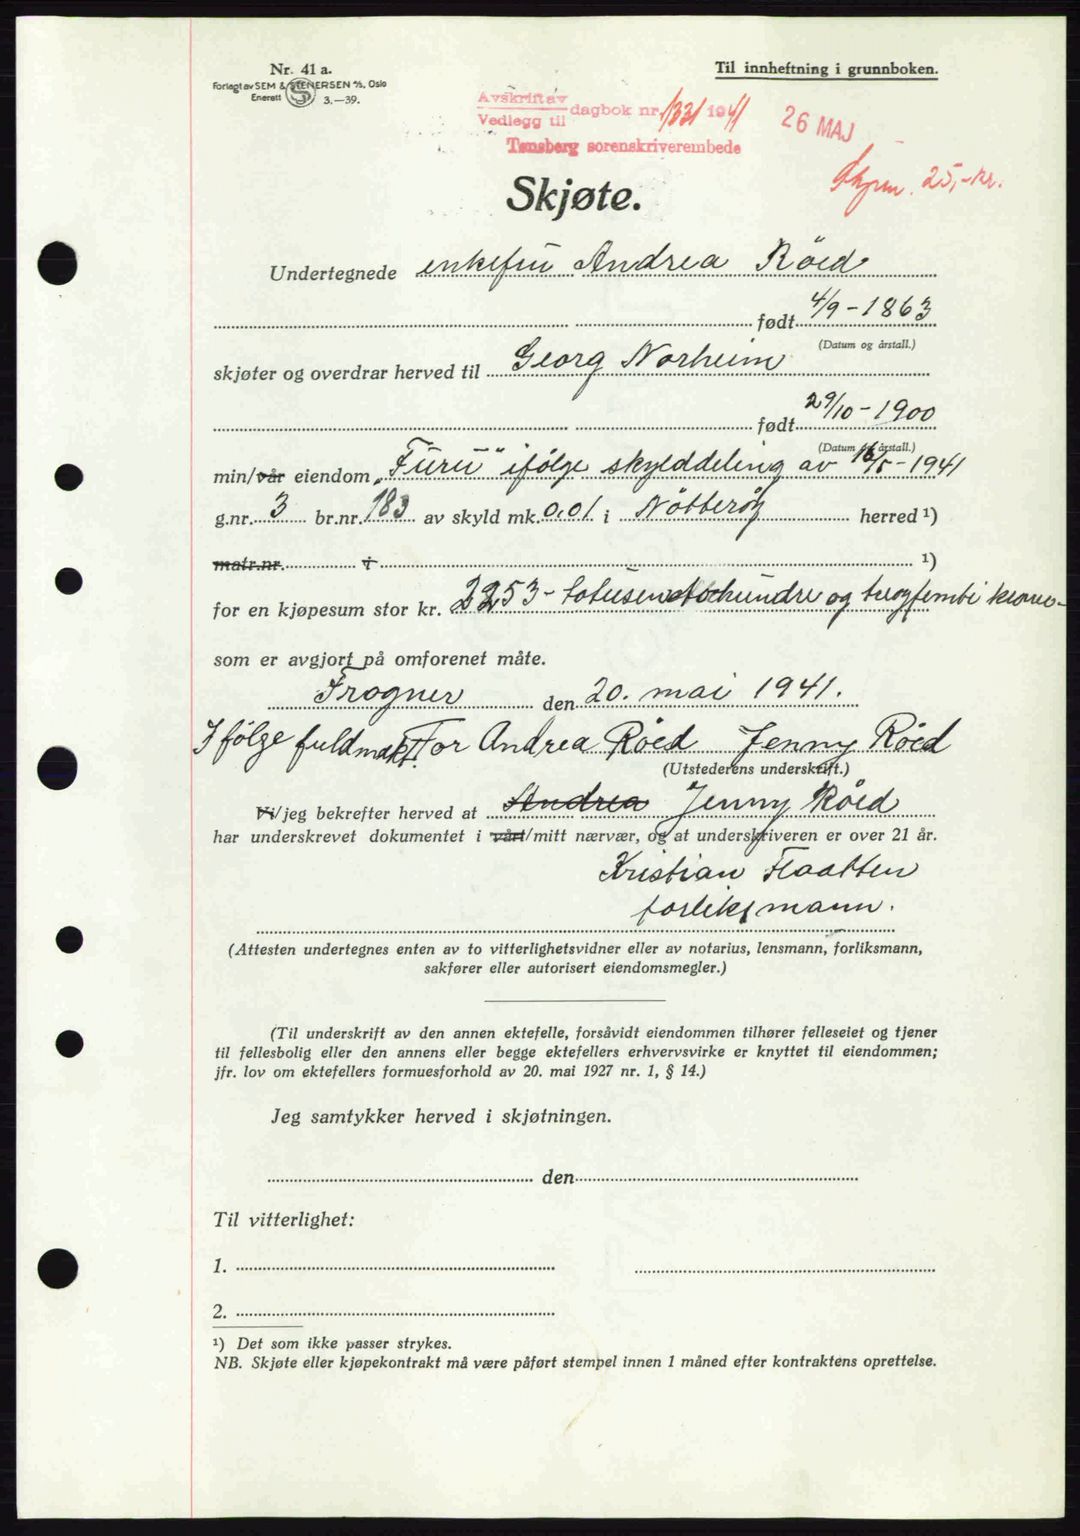 Nr. 41 a.
Forlagt av SEM & STENERSEN A/S, Oslo
Enerett 3.-39.
Til innheftning i grunnboken.
Avskrift av
Vedlegg til dagbok nr. 1331 1941 26 MAJ
Tønsberg sorenskriverembede
25,- kr.
Skjøte.
Undertegnede enkefru Andrea Röed
født 4/9 - 1863
(Datum og årstall.)
skjøter og overdrar herved til Georg Norheim
født 29/10 - 1900
(Datum og årstall.)
min/vår eiendom „Furu" ifölge skylddeling av 16/5 - 1941
g.nr. 3 br.nr. 183 av skyld mk. 0,01 i Nötteröy herred ¹)
matr.nr. i ¹)
for en kjøpesum stor kr. 2253 - totusentohundre og kroner -
som er avgjort på omforenet måte.
Frogner den 20. mai 1941.
Ifölge fuldmakt. For Andrea Röed Jenny Röed
(Utstederens underskrift.)
Vi/jeg bekrefter herved at Andrea Jenny Röed
har underskrevet dokumentet i vårt/mitt nærvær, og at underskriveren er over 21 år.
Kristian Flaatten
forliksmann.
(Attesten undertegnes enten av to vitterlighetsvidner eller av notarius, lensmann, forliksmann,
sakfører eller autorisert eiendomsmegler.)
(Til underskrift av den annen ektefelle, forsåvidt eiendommen tilhører felleseiet og tjener
til fellesbolig eller den annens eller begge ektefellers erhvervsvirke er knyttet til eiendommen;
jfr. lov om ektefellers formuesforhold av 20. mai 1927 nr. 1, § 14.)
Jeg samtykker herved i skjøtningen.
den
Til vitterlighet:
1.
2.
¹) Det som ikke passer strykes.
NB. Skjøte eller kjøpekontrakt må være påført stempel innen 1 måned efter kontraktens oprettelse.